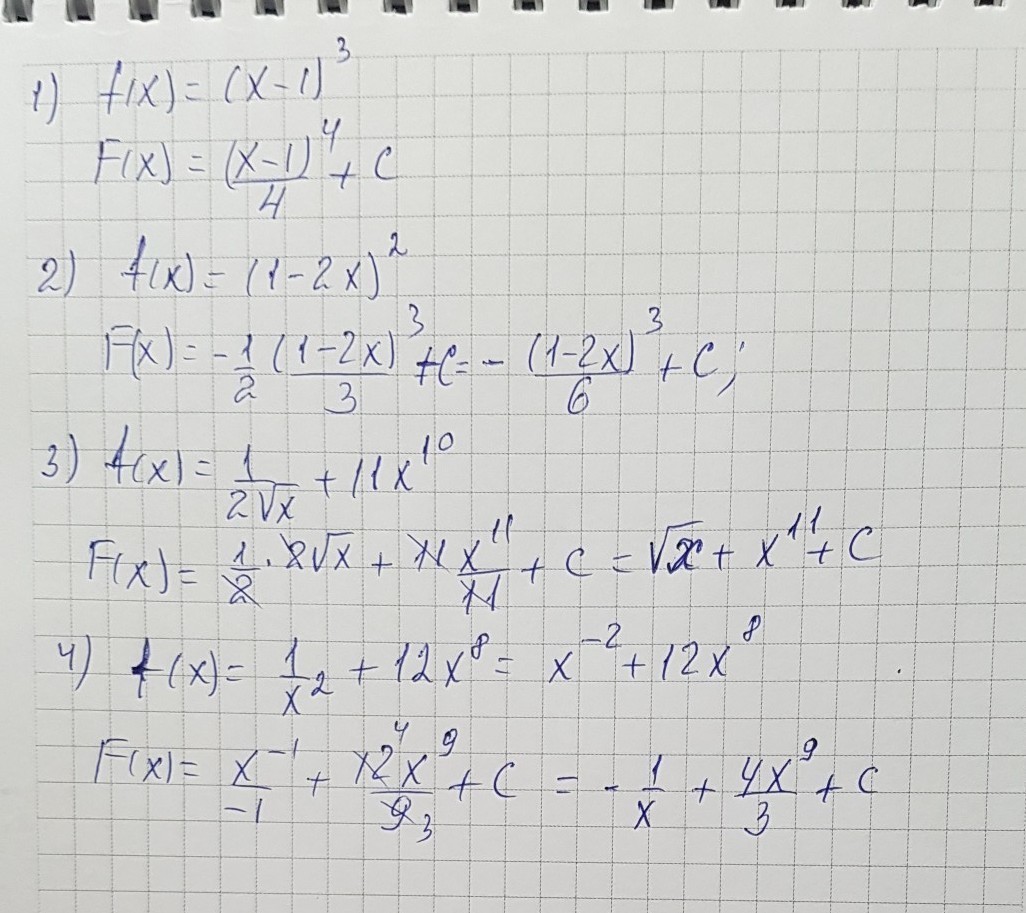 1) f(x) = (x-1)^3
F(x) = (x-1)^4/4 + C
2) f(x) = (1-2x)^2
F(x) = -1/2 (1-2x)^3/3 + C = - (1-2x)^3/6 + C;
3) f(x) = 1/(2√x) + 11x^10
F(x) = 1/2 · 2√x + 11x^11/11 + C = √x + x^11 + C
4) f(x) = 1/x^2 + 12x^8 = x^-2 + 12x^8
F(x) = x^-1/-1 + 12 4 x^9/9 3 + C = - 1/x + 4x^9/3 + C